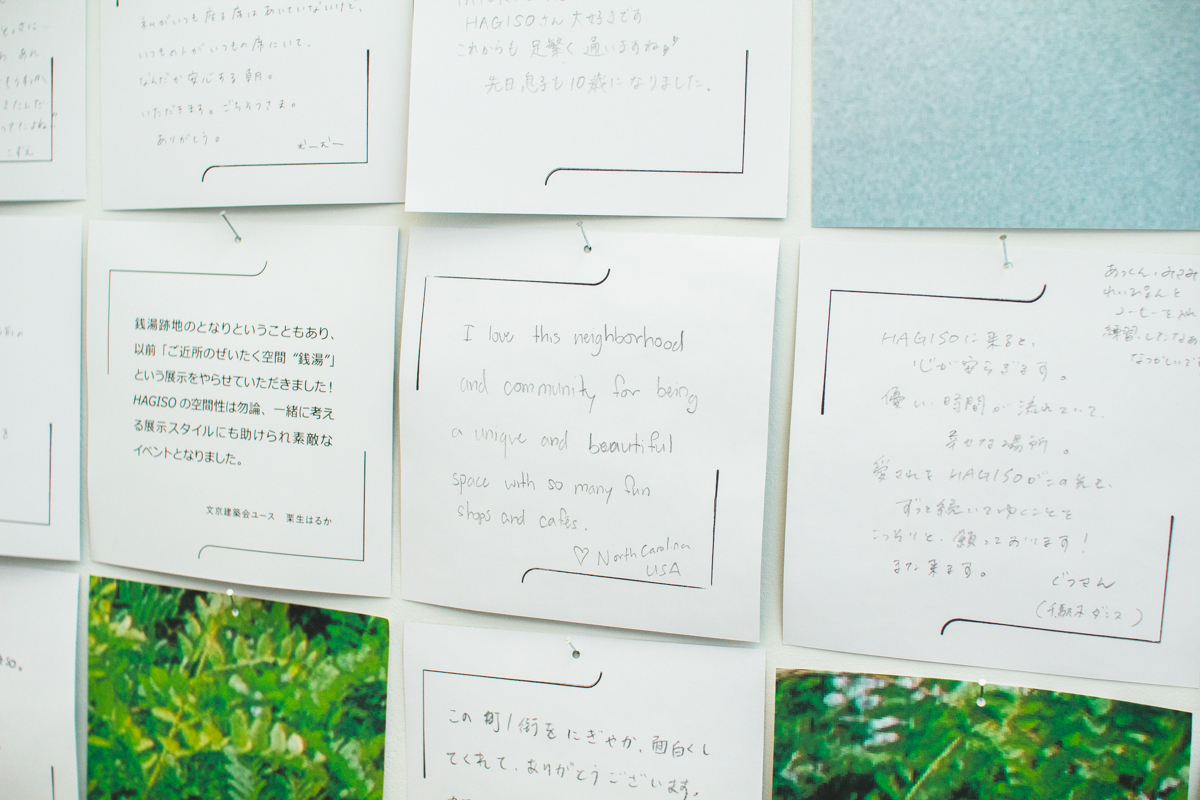 私がいつも座る席はあいていないけど、
いつもの人がいつもの席にいて、
なんだか安心する朝。
いただきます。ごちそうさま。
ありがとう。
HAGISOさん大好きです
これからも 足繁く 通いますね
先日息子も10歳になりました。
銭湯跡地のとなりということもあり、
以前「ご近所のぜいたく空間 “銭湯”」
という展示をやらせていただきました！
HAGISO の空間性は勿論、一緒に考え
る展示スタイルにも助けられ素敵な
イベントとなりました。
文京建築会ユース 栗生はるか
I love this neighborhood
and community for being
a unique and beautiful
space with so many fun
shops and cafés.
♡ North Carolina
USA
HAGISOに来ると、
心が安らぎます。
優しい時間が流れていて、
幸せな場所。
愛されるHAGISOがこの先も、
ずっと続いてゆくことを
こっそりと、願っております！
また来ます。
ぐっさん
練習したなあ
なつかしいで
この町/街をにぎやか、面白くし
てくれて、ありがとうございます。